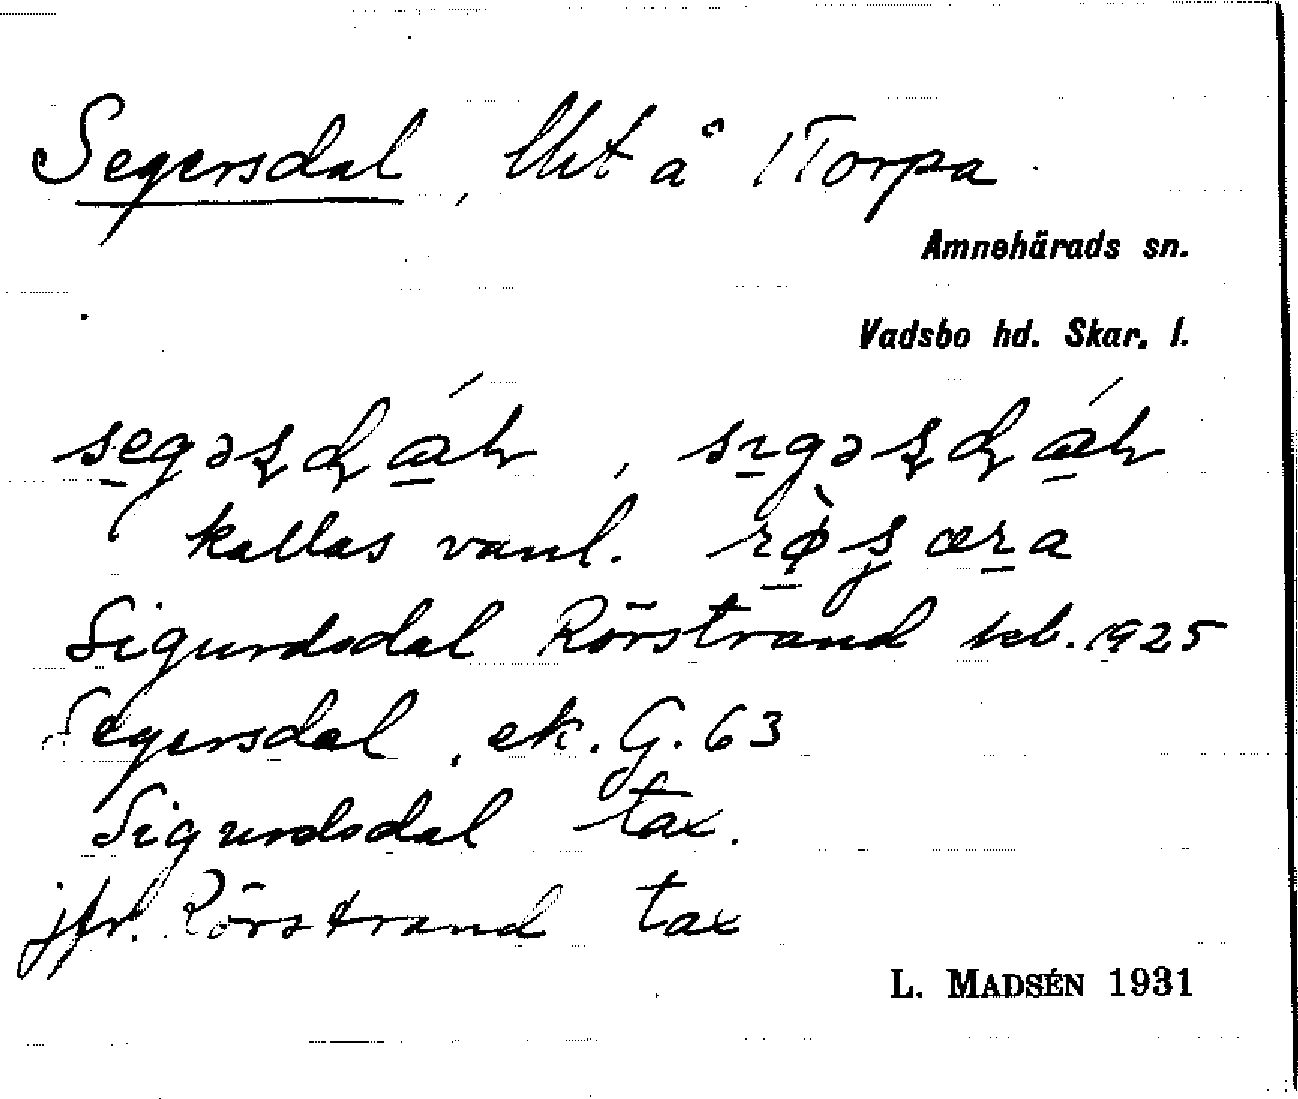 Segersdal, lht å 1 Torpa
Amnehärads sn.
Vadsbo hd. Skar. l.
segəʂɖál, sıgəʂɖál
kallas vanl. rø̀ʂæra
Sigurdsdal Rörstrand kb. 1925
Segersdal, ek. G. 63
Sigurdsdal tax.
jfr. Rörstrand tax
L. MADSÉN 1931